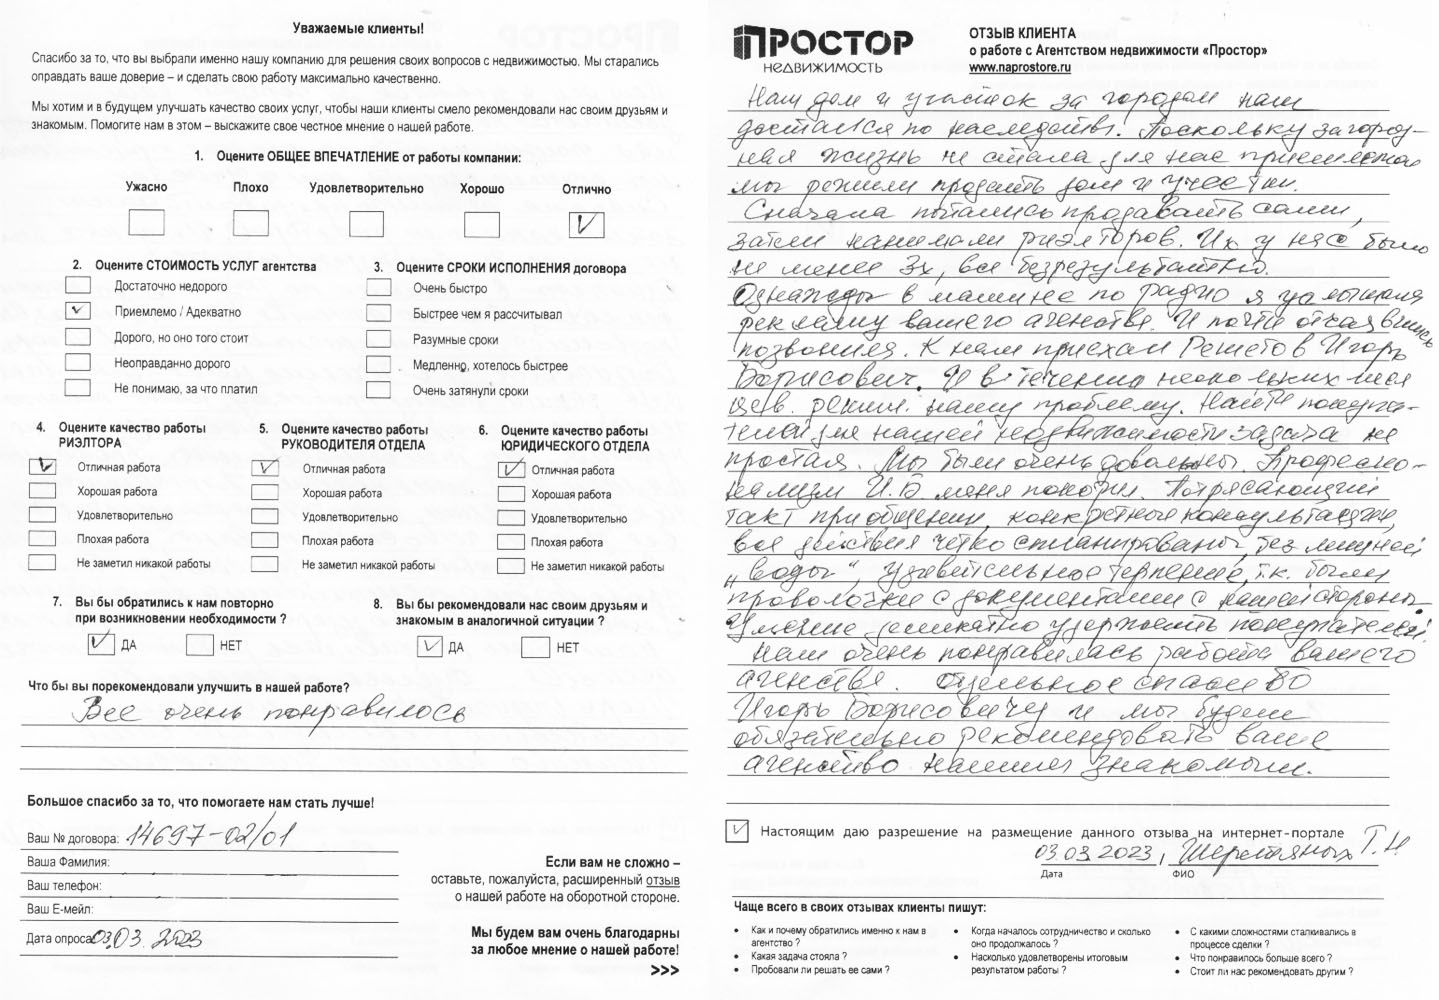 Уважаемые клиенты!
Спасибо за то, что вы выбрали именно нашу компанию для решения своих вопросов с недвижимостью. Мы старались
оправдать ваше доверие – и сделать свою работу максимально качественно.
Мы хотим и в будущем улучшать качество своих услуг, чтобы наши клиенты смело рекомендовали нас своим друзьям и
знакомым. Помогите нам в этом – выскажите свое честное мнение о нашей работе.
1. Оцените ОБЩЕЕ ВПЕЧАТЛЕНИЕ от работы компании:
Ужасно Плохо Удовлетворительно Хорошо Отлично
2. Оцените СТОИМОСТЬ УСЛУГ агентства
Достаточно недорого
Приемлемо / Адекватно
Дорого, но оно того стоит
Неоправданно дорого
Не понимаю, за что платил
3. Оцените СРОКИ ИСПОЛНЕНИЯ договора
Очень быстро
Быстрее чем я рассчитывал
Разумные сроки
Медленно, хотелось быстрее
Очень затянули сроки
4. Оцените качество работы
РИЭЛТОРА
Отличная работа
Хорошая работа
Удовлетворительно
Плохая работа
Не заметил никакой работы
5. Оцените качество работы
РУКОВОДИТЕЛЯ ОТДЕЛА
Отличная работа
Хорошая работа
Удовлетворительно
Плохая работа
Не заметил никакой работы
6. Оцените качество работы
ЮРИДИЧЕСКОГО ОТДЕЛА
Отличная работа
Хорошая работа
Удовлетворительно
Плохая работа
Не заметил никакой работы
7. Вы бы обратились к нам повторно
при возникновении необходимости ?
ДА НЕТ
8. Вы бы рекомендовали нас своим друзьям и
знакомым в аналогичной ситуации ?
ДА НЕТ
Что бы вы порекомендовали улучшить в нашей работе?
Все очень понравилось
Большое спасибо за то, что помогаете нам стать лучше!
Ваш № договора: 14697-02/01
Ваша Фамилия:
Ваш телефон:
Ваш Е-мейл:
Дата опроса 03.03.2023
Если вам не сложно –
оставьте, пожалуйста, расширенный отзыв
о нашей работе на оборотной стороне.
Мы будем вам очень благодарны
за любое мнение о нашей работе!
>>>
ПРОСТОР
НЕДВИЖИМОСТЬ
ОТЗЫВ КЛИЕНТА
о работе с Агентством недвижимости «Простор»
www.naprostore.ru
Наш дом и участок за городом нам
достался по наследств. Поскольку загород-
ная жизнь не стала для нас приемлемой
мы решили продать дом и участки.
Сначала пытались продавать сами,
затем нанимали риэлторов. Их у нас было
не менее 3х, все безрезультатно.
Однажды в машине по радио я услышала
рекламу вашего агенства. И почти отчаявшись
позвонила. К нам приехал Решетов Игорь
Борисович. И в течении нескольких меся
цев. решил. нашу проблему. Найти покупа-
телей для нашей недвижимости задача не
простая. Мы были очень довольны. Професио-
нализм И.Б. меня покорил. Потрясающий
такт при общении, конкретные консультации,
все действия четко спланированы, без лишней
„воды“, удивительное терпение, т.к. были
проволочки с документами с нашей стороны.
Умение деликатно удержать покупателей.
Нам очень понравилась работа вашего
агенства. Отдельное спасибо
Игорь Борисовичу и мы будем
обязательно рекомендовать ваше
агенство нашим знакомым.
Настоящим даю разрешение на размещение данного отзыва на интернет-портале
03.03.2023, Шерстяных Т.Н.
Дата ФИО
Чаще всего в своих отзывах клиенты пишут:
• Как и почему обратились именно к нам в
агентство ?
• Какая задача стояла ?
• Пробовали ли решать ее сами ?
• Когда началось сотрудничество и сколько
оно продолжалось ?
• Насколько удовлетворены итоговым
результатом работы ?
• С какими сложностями сталкивались в
процессе сделки ?
• Что понравилось больше всего ?
• Стоит ли нас рекомендовать другим ?